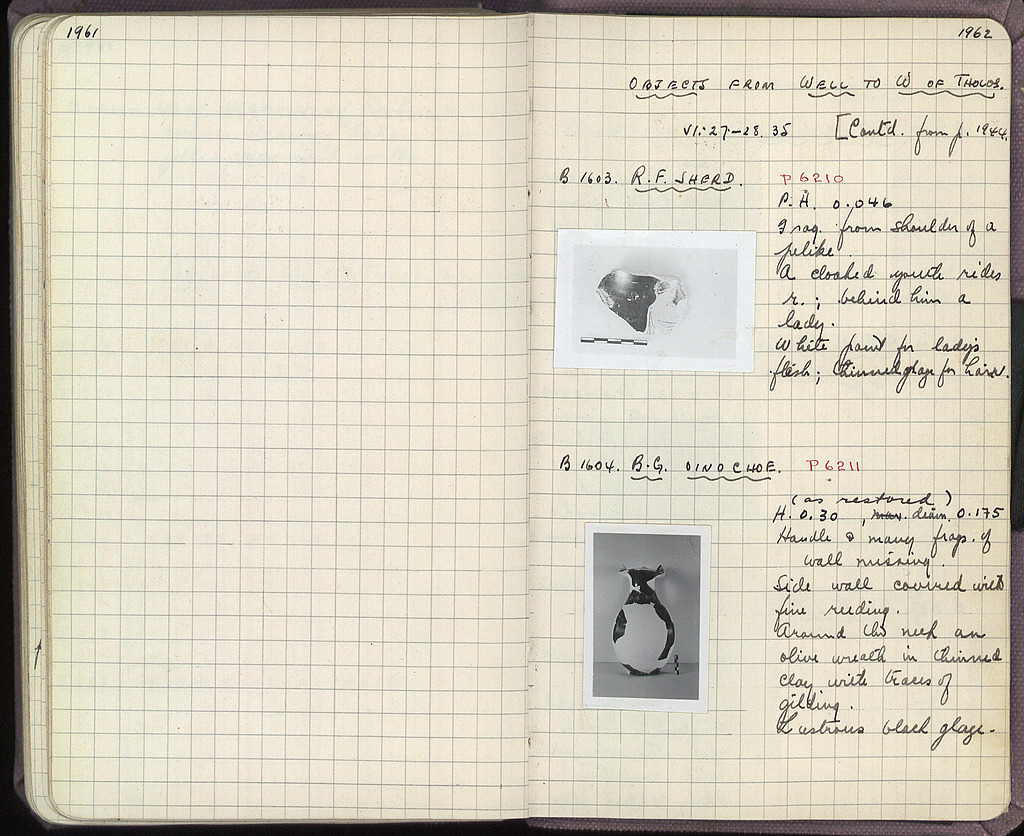 1961
1962
OBJECTS FROM WELL TO W OF THOLOS.
VI: 27–28. 35 [Contd. from p. 1944.
B 1603. R.F. SHERD. P 6210
P.H. 0.046
Frag. from shoulder of a
pelike.
A cloaked youth rides
r.; behind him a
lady.
White paint for lady's
flesh; thinned glaze for hair.
B 1604. B.G. OINOCHOE. P 6211
(as restored)
H. 0.30, max. diam. 0.175
Handle & many frags. of
wall missing.
Side wall covered with
fine reeding.
Around the neck an
olive wreath in thinned
clay with traces of
gilding.
Lustrous black glaze.